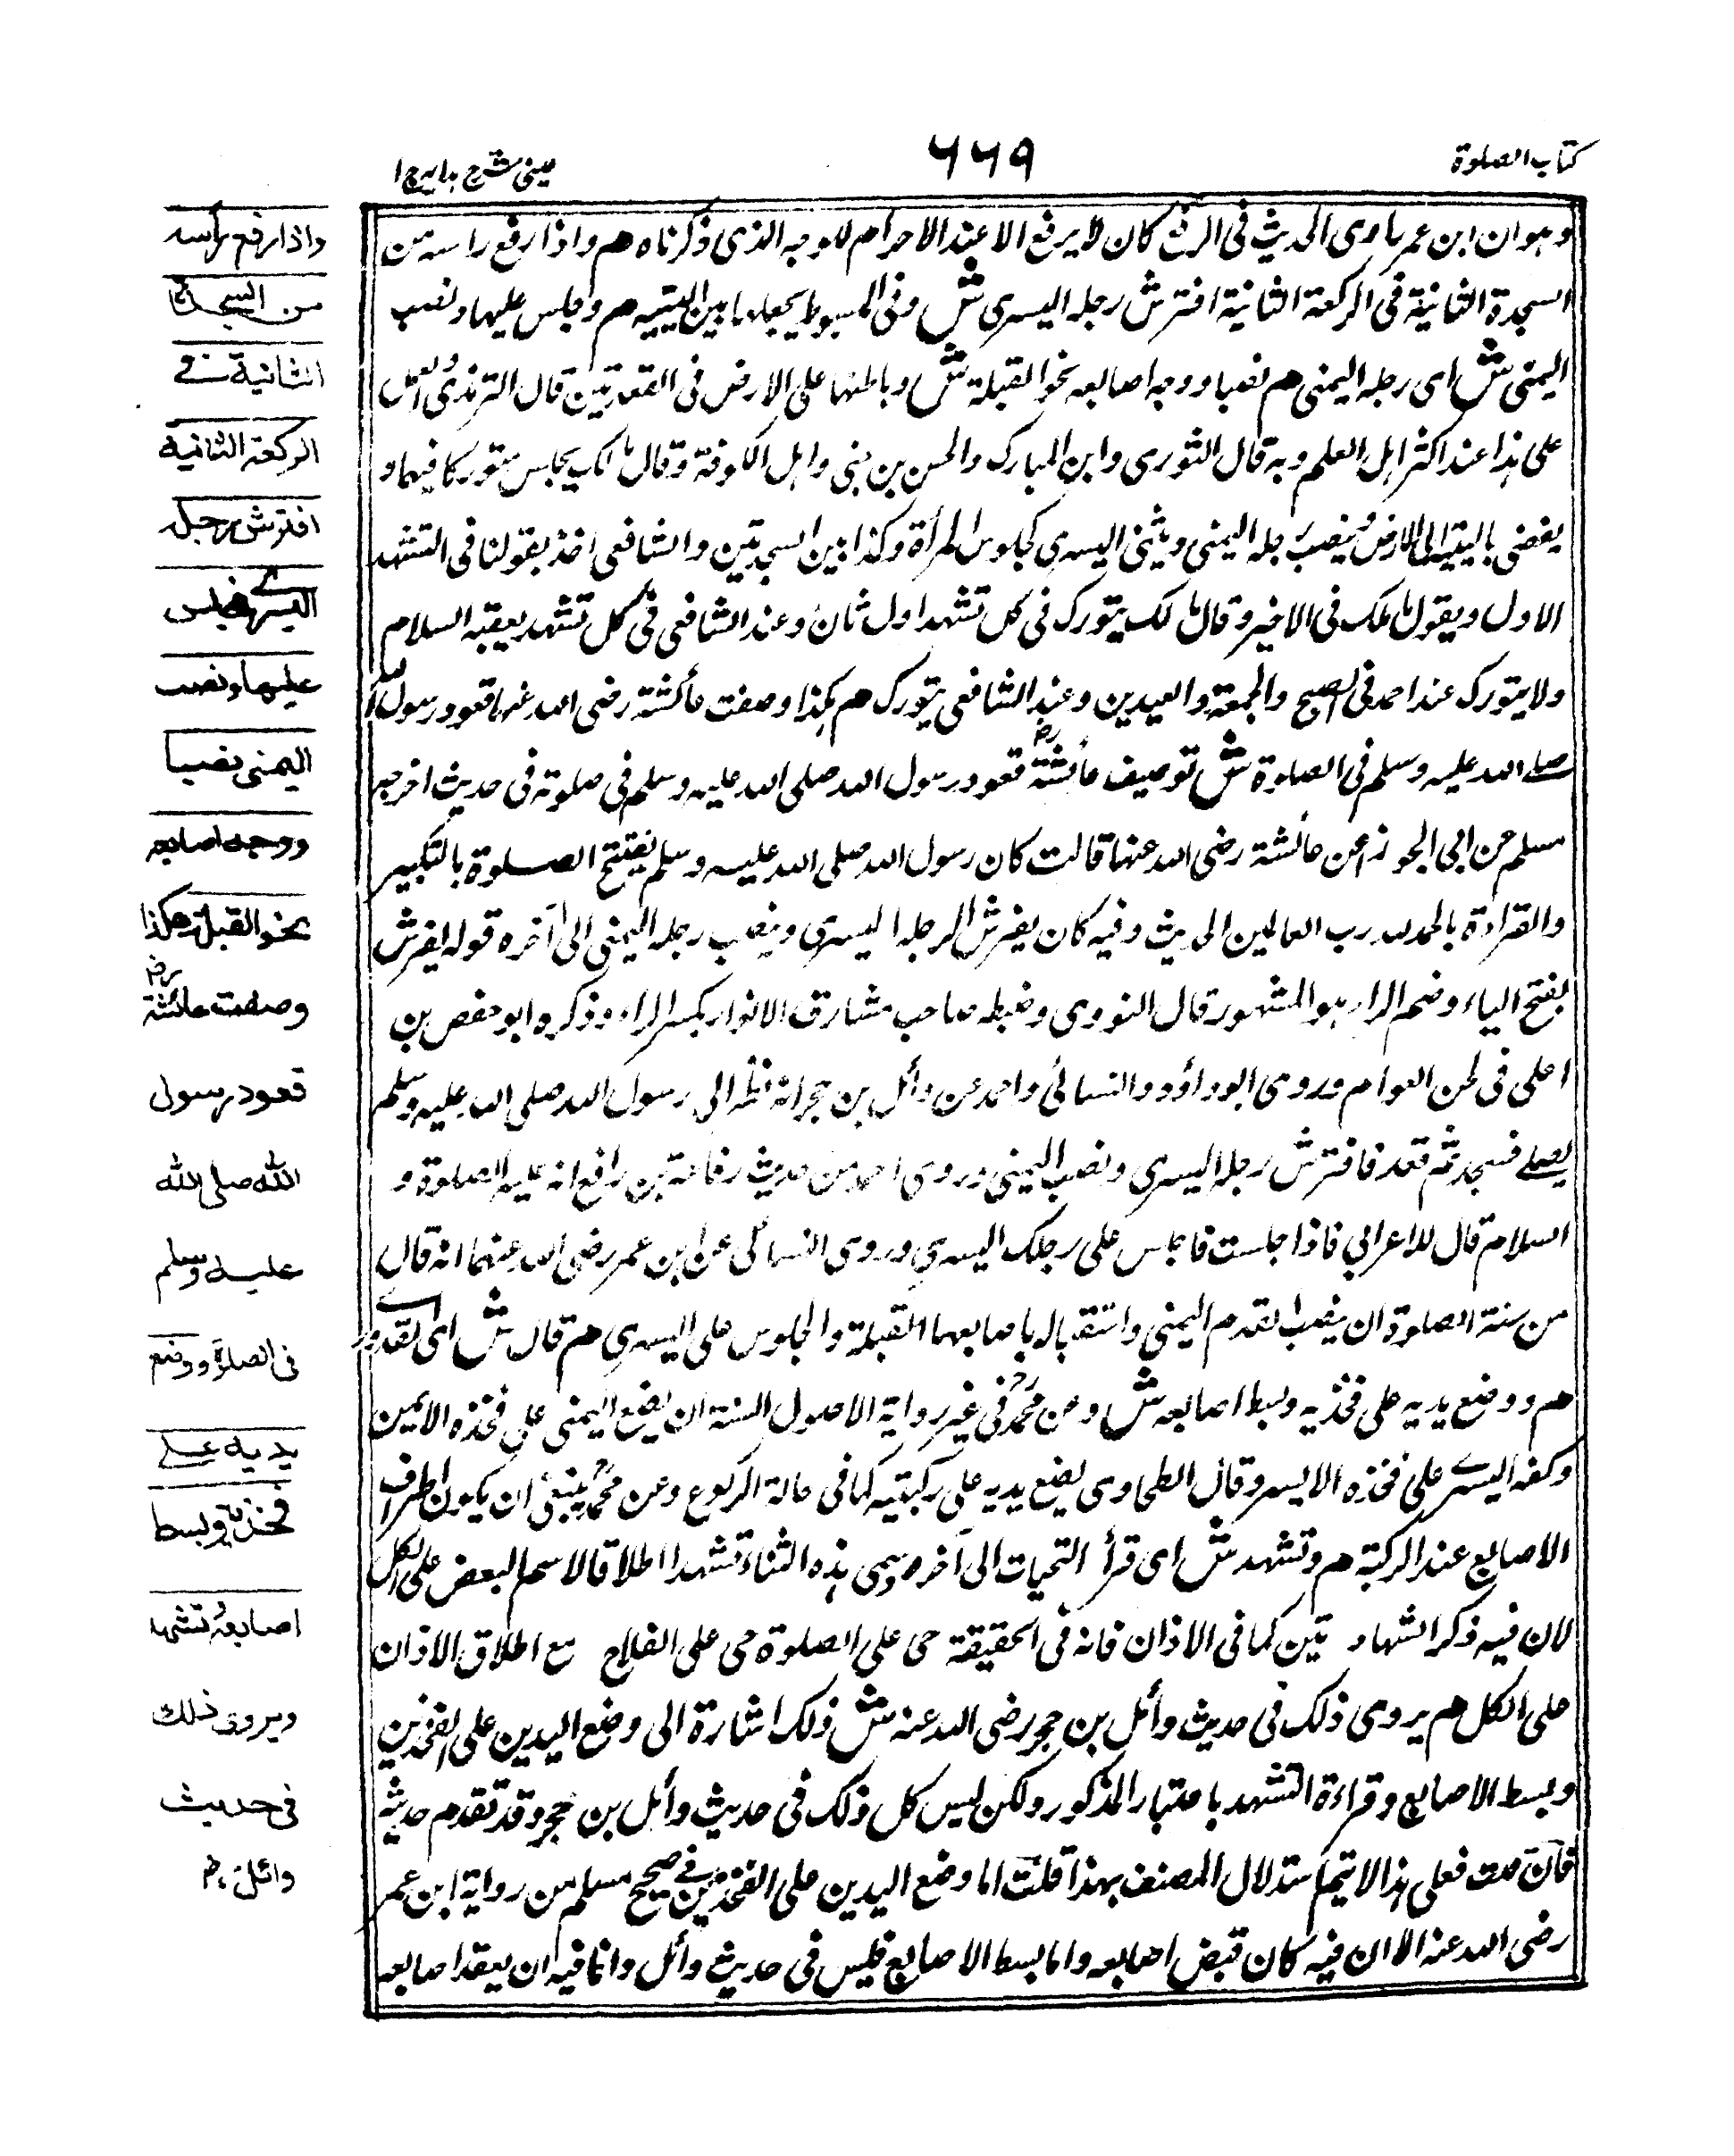 كتاب الصلوة
٦٦٩
عينى شرح هدايه ج ا
وهو ان ابن عمر راوى الحديث فى الرفع كان لا يرفع الا عند الاحرام للوجه الذى ذكرناه هم واذا رفع راسه من
السجدة الثانية فى الركعة الثانية افترش رجله اليسرى ش وفى المبسوط يجعلها بين اليتيه هم وجلس عليها ونصب
اليمنى ش اى رجله اليمنى هم نصبا ووجه اصابعه نحو القبلة ش وباطنها على الارض فى القعدتين قال الترمذى العمل
على هذا عند اكثر اهل العلم وبه قال الثورى وابن المبارك والحسن بن حى واهل الكوفة وقال مالك يجلس متوركا فيهما و
يفضى باليتيه الى الارض وينصب رجله اليمنى ويثنى اليسرى كجلوس المرأة وكذا بين السجدتين والشافعى اخذ بقولنا فى التشهد
الاول وبقول مالك فى الاخير وقال مالك يتورك فى كل تشهد اول ثان وعند الشافعى فى كل تشهد يعقبه السلام
ولا يتورك عند احمد فى الصبح والجمعة والعيدين وعند الشافعى يتورك هم هكذا وصفت عائشة رضى الله عنها قعود رسول الله
صلى الله عليه وسلم فى الصلوة ش توصيف عائشة رض قعود رسول الله صلى الله عليه وسلم فى صلوته فى حديث اخرجه
مسلم عن ابى الجوزاء عن عائشة رضى الله عنها قالت كان رسول الله صلى الله عليه وسلم يفتتح الصلوة بالتكبير
والقراءة بالحمد لله رب العالمين الحديث وفيه كان يفرش رجله اليسرى وينصب رجله اليمنى الى آخره قوله يفرش
بفتح الياء وضم الراء هو المشهور قال النووى وضبطه صاحب مشارق الانوار بكسر الراء وذكره ابو حفص بن
اعلى فى لحن العوام وروى ابو داؤد والنسائى واحمد عن وائل بن حجر انه نظر الى رسول الله صلى الله عليه وسلم
يصلے فسجد ثم قعد فافترش رجله اليسرى ونصب اليمنى وروى احمد من حديث رفاعة بن رافع انه عليه الصلوة و
السلام قال للاعرابى فاذا جلست فاجلس على رجلك اليسرى وروى النسائى عن ابن عمر رضى الله عنهما انه قال
من سنة الصلوة ان ينصب القدم اليمنى واستقباله باصابعها القبلة والجلوس على اليسرى هم قال ش اى القدورے
هم ووضع يديه على فخذيه وبسط اصابعه ش وعن محمد رح فى غير رواية الاصول السنة ان يضع اليمنى على فخذه الايمن
وكفه اليسرے على فخذه الايسر وقال الطحاوى يضع يديه على ركبتيه كما فى حالة الركوع وعن محمد رح ينبغى ان يكون اطراف
الاصابع عند الركبة هم وتشهد ش اى قرأ التحيات الى آخره وسمى هذه الثناء تشهدا اطلاقا لاسم البعض على الكل
لان فيه ذكر الشهادتين كما فى الاذان فانه فى الحقيقة حى على الصلوة حى على الفلاح مع اطلاق الاذان
على الكل هم يروى ذلك فى حديث وائل بن حجر رضى الله عنه ش ذلك اشارة الى وضع اليدين على الفخذين
وبسط الاصابع وقراءة التشهد باعتبار المذكور ولكن ليس كل ذلك فى حديث وائل بن حجر وقد تقدم حديثه
فان قلت فعلى هذا لا يتم استدلال المصنف بهذا قلت اما وضع اليدين على الفخذين ففى صحيح مسلم من رواية ابن عمر
رضى الله عنه الا ان فيه كان قبض اصابعه واما بسط الاصابع فليس فى حديث وائل وانما فيه ان يعقد اصابعه
واذا رفع راسه
من السجدة
الثانية فے
الركعة الثانية
افترش رجله
اليسرے فجلس
عليها ونصب
اليمنى نصبا
ووجه اصابعه
نحو القبلة هكذا
وصفت عائشة رض
قعود رسول
الله صلى الله
عليه وسلم
فى الصلوة ووضع
يديه علے
فخذيه وبسط
اصابعه وتشهد
ويروى ذلك
فى حديث
وائل رض